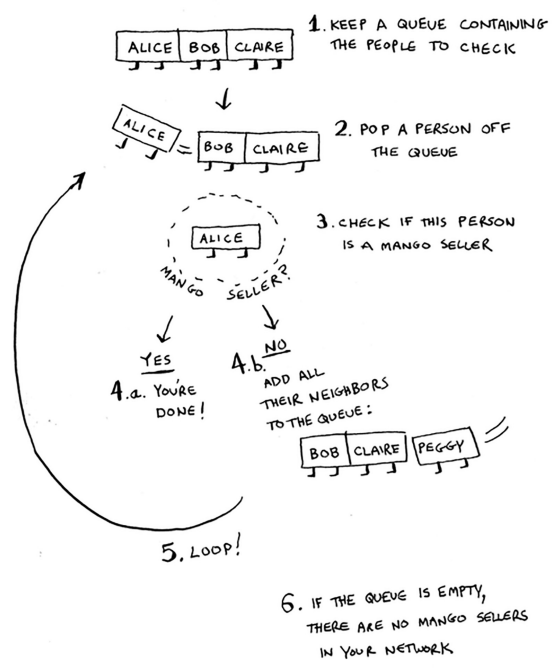 1. KEEP A QUEUE CONTAINING
THE PEOPLE TO CHECK
ALICE BOB CLAIRE
2. POP A PERSON OFF
THE QUEUE
ALICE
BOB CLAIRE
3. CHECK IF THIS PERSON
IS A MANGO SELLER
ALICE
MANGO SELLER?
YES
4.a. YOU'RE
DONE!
4.b. NO
ADD ALL
THEIR NEIGHBORS
TO THE QUEUE:
BOB CLAIRE PEGGY
5. LOOP!
6. IF THE QUEUE IS EMPTY,
THERE ARE NO MANGO SELLERS
IN YOUR NETWORK